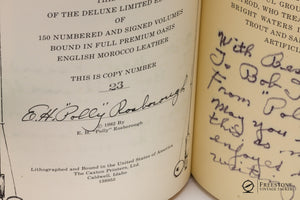 OF THE DELUXE LIMITED
OF
150 NUMBERED AND SIGNED VOLUMES
BOUND IN FULL PREMIUM OASIS
ENGLISH MOROCCO LEATHER
THIS IS COPY NUMBER
23
E.H. "Polly" Rosborough
© 1982 By
E. H. "Polly" Rosborough
Lithographed and Bound in the United States of America
The Caxton Printers, Ltd.
Caldwell, Idaho
UL GRO
TROD, WHO TRE
BRIGHT WATERS
TROUT AND SA
ARTIFIC
With Bes
To Bob
From "Pol
May you
this as m
enjoyed
writ
FREESTONE
VINTAGE TACKLE